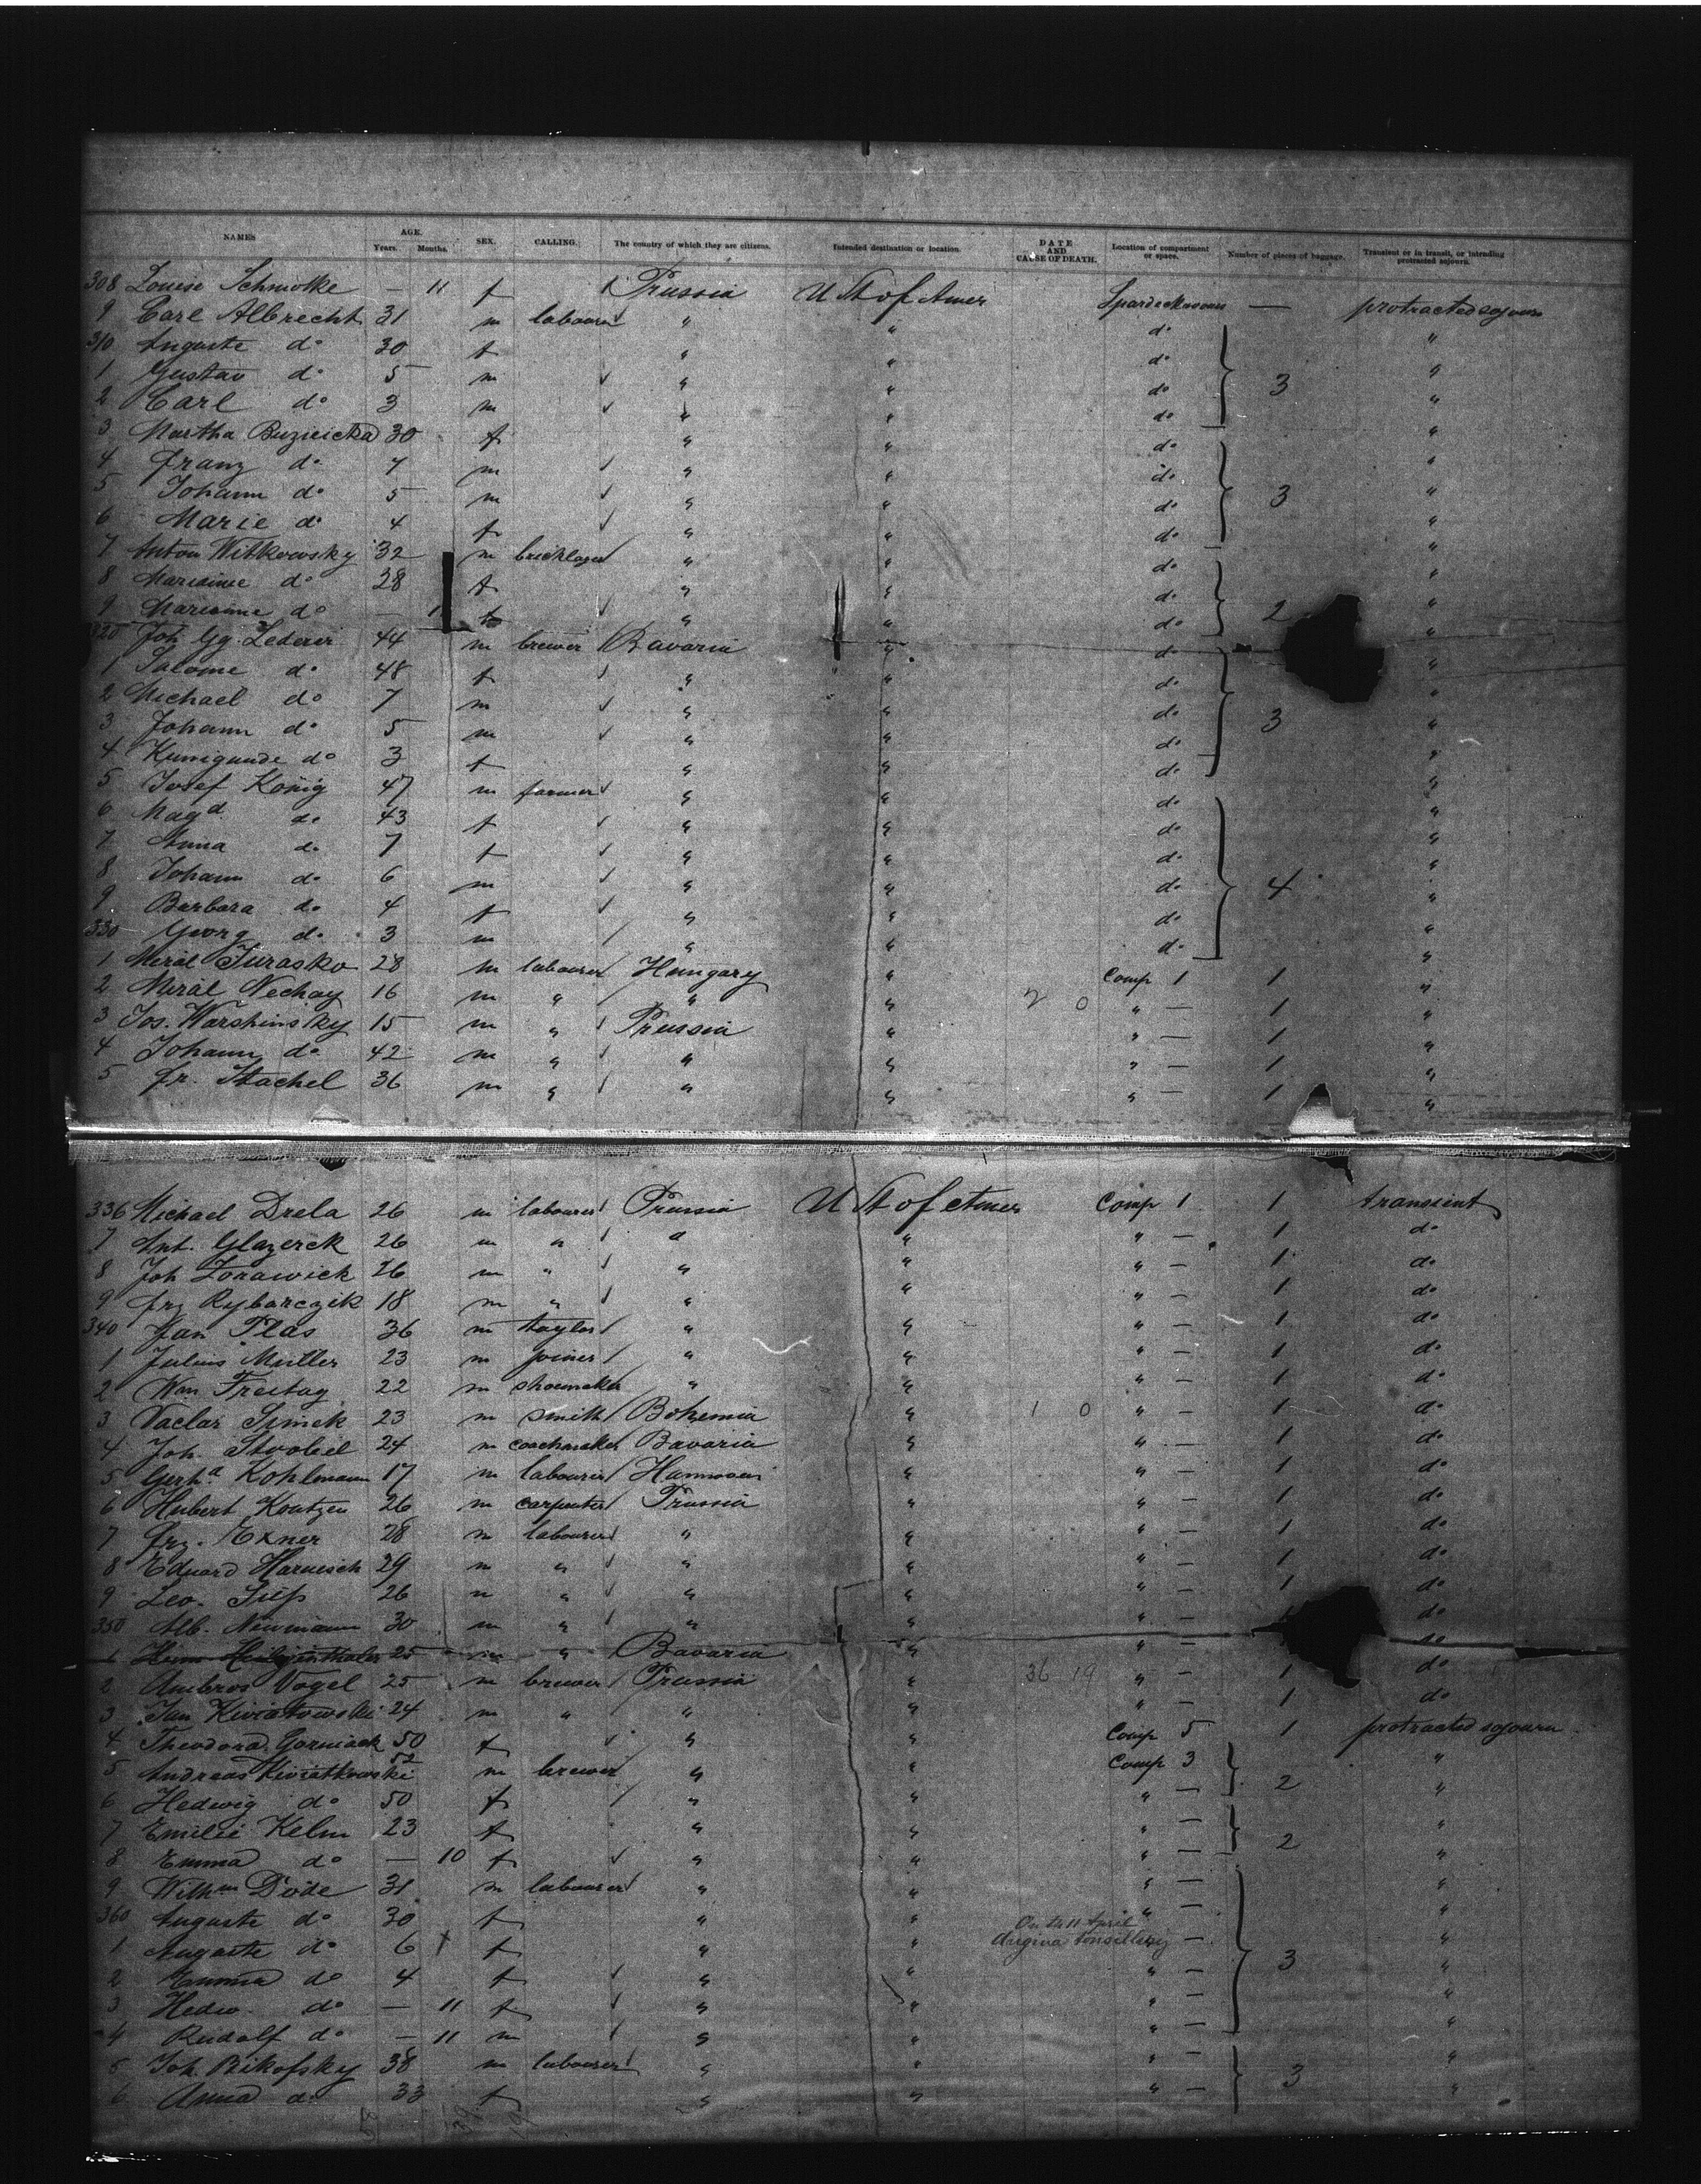 NAMES AGE. Years. Months. SEX. CALLING. The country of which they are citizens. Intended destination or location. DATE AND CAUSE OF DEATH. Location of compartment or space. Number of pieces of baggage. Transient or in transit, or intending protracted sojourn.
308 Louise Schmolke — 11 f Prussia U St of Amer — protracted sojourn
9 Carl Albrecht 31 m labourer " " do "
310 Auguste do 30 f " " do "
1 Gustav do 5 m " " do 3 "
2 Carl do 3 m " " do "
3 Martha 30 f " " do "
4 Franz do 7 m " " do "
5 Johann do 5 m " " do 3 "
6 Marie do 4 f " " do "
7 Anton Witkowsky 32 m bricklayer " " do "
8 Marianne do 28 f " " do "
9 Marianne do — f " " do 2 "
320 Joh Gg. Lederer 44 m brewer Bavaria " do "
1 Salome do 48 f " " do "
2 Michael do 7 m " " do "
3 Johann do 5 m " " do 3 "
4 Kunigunde do 3 f " " do "
5 Josef König 47 m farmer " " do "
6 Magd do 43 f " " do "
7 Anna do 7 f " " do "
8 Johann do 6 m " " do 4 "
9 Barbara do 4 f " " do "
330 Georg do 3 m " " do "
1 Jurasko 28 m labourer Hungary " Comp 1 1 "
2 Nechay 16 m " " " " — 1 "
3 Jos. Warshinsky 15 m " Prussia " " — 1 "
4 Johann do 42 m " " " " — 1 "
5 Fr. Stachel 36 m " " " " — 1 "
336 Michael Drela 26 m labourer Prussia U St of Amer Comp 1 1 transient
7 Ant. Glazerek 26 m " " " " — 1 do
8 Joh Zorawick 26 m " " " " — 1 do
9 Frz Rybarczik 18 m " " " " — 1 do
340 Jan Plas 36 m taylor " " " — 1 do
1 Julius Müller 23 m joiner " " " — 1 do
2 Wm Freitag 22 m shoemaker " " " — 1 do
3 Vaclav Simek 23 m smith Bohemia " 1 0 " — 1 do
4 Joh. Strobel 24 m coachmaker Bavaria " " — 1 do
5 Gerhd Kohlmann 17 m labourer Hannover " " — 1 do
6 Hubert Koutzen 26 m carpenter Prussia " " — 1 do
7 Frz. Exner 28 m labourer " " " — 1 do
8 Eduard Harnisch 29 m " " " " — 1 do
9 Leo. 26 m " " " " — 1 do
350 Alb. Neumann 30 m " " " " — do
1 Heinr Heiligenthaler 25 m " Bavaria " " — do
2 Ambros Vogel 25 m brewer Prussia " 36 19 " — 1 do
3 Jan Kwiatowski 24 m " " " " — 1 do
4 Theodora Gorniack 50 f " " Comp 5 1 protracted sojourn
5 Andreas Kwiatkowski 52 m brewer " " Comp 3 "
6 Hedwig do 50 f " " " — 2 "
7 Emilie Kelm 23 f " " " — "
8 Emma do — 10 f " " " — 2 "
9 Wilhm Döde 31 m labourer " " " — "
360 Auguste do 30 f " " On th 11 April " — "
1 Auguste do 6 f " " Angina tonsillaris — "
2 Emma do 4 f " " " — 3 "
3 Hedw. do — 11 f " " " — "
4 Rudolf do — 11 m " " " — "
5 Joh. Bikofsky 38 m labourer " " " — "
6 Anna do 33 f " " " — 3 "